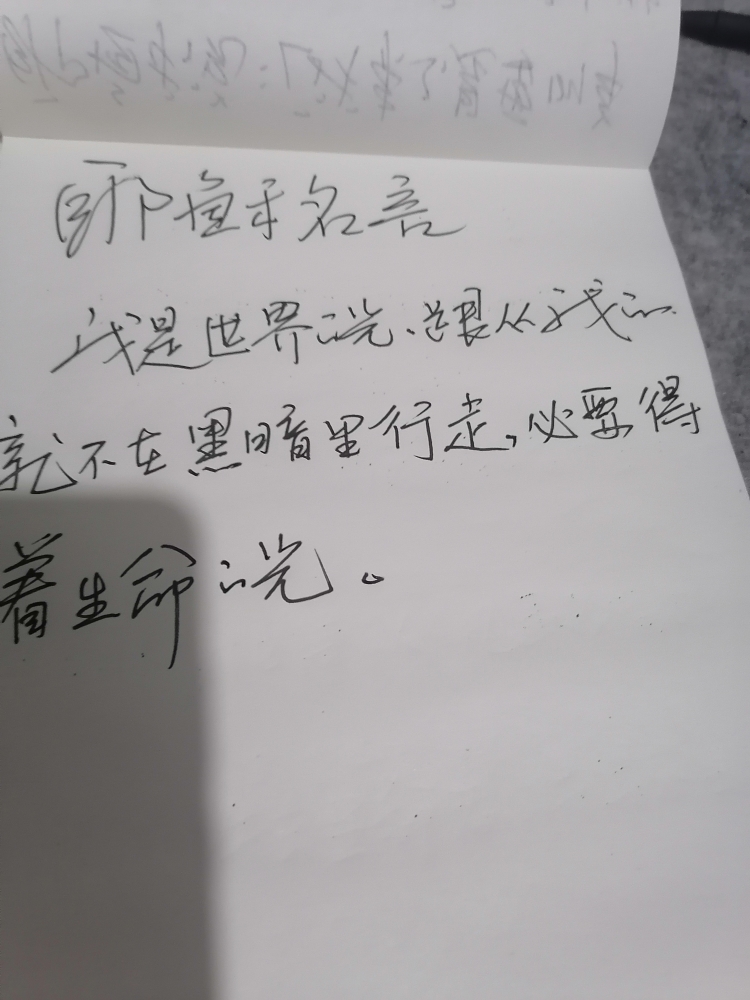 耶稣名言
我是世界的光、跟从我的
就不在黑暗里行走，必要得
着生命的光。